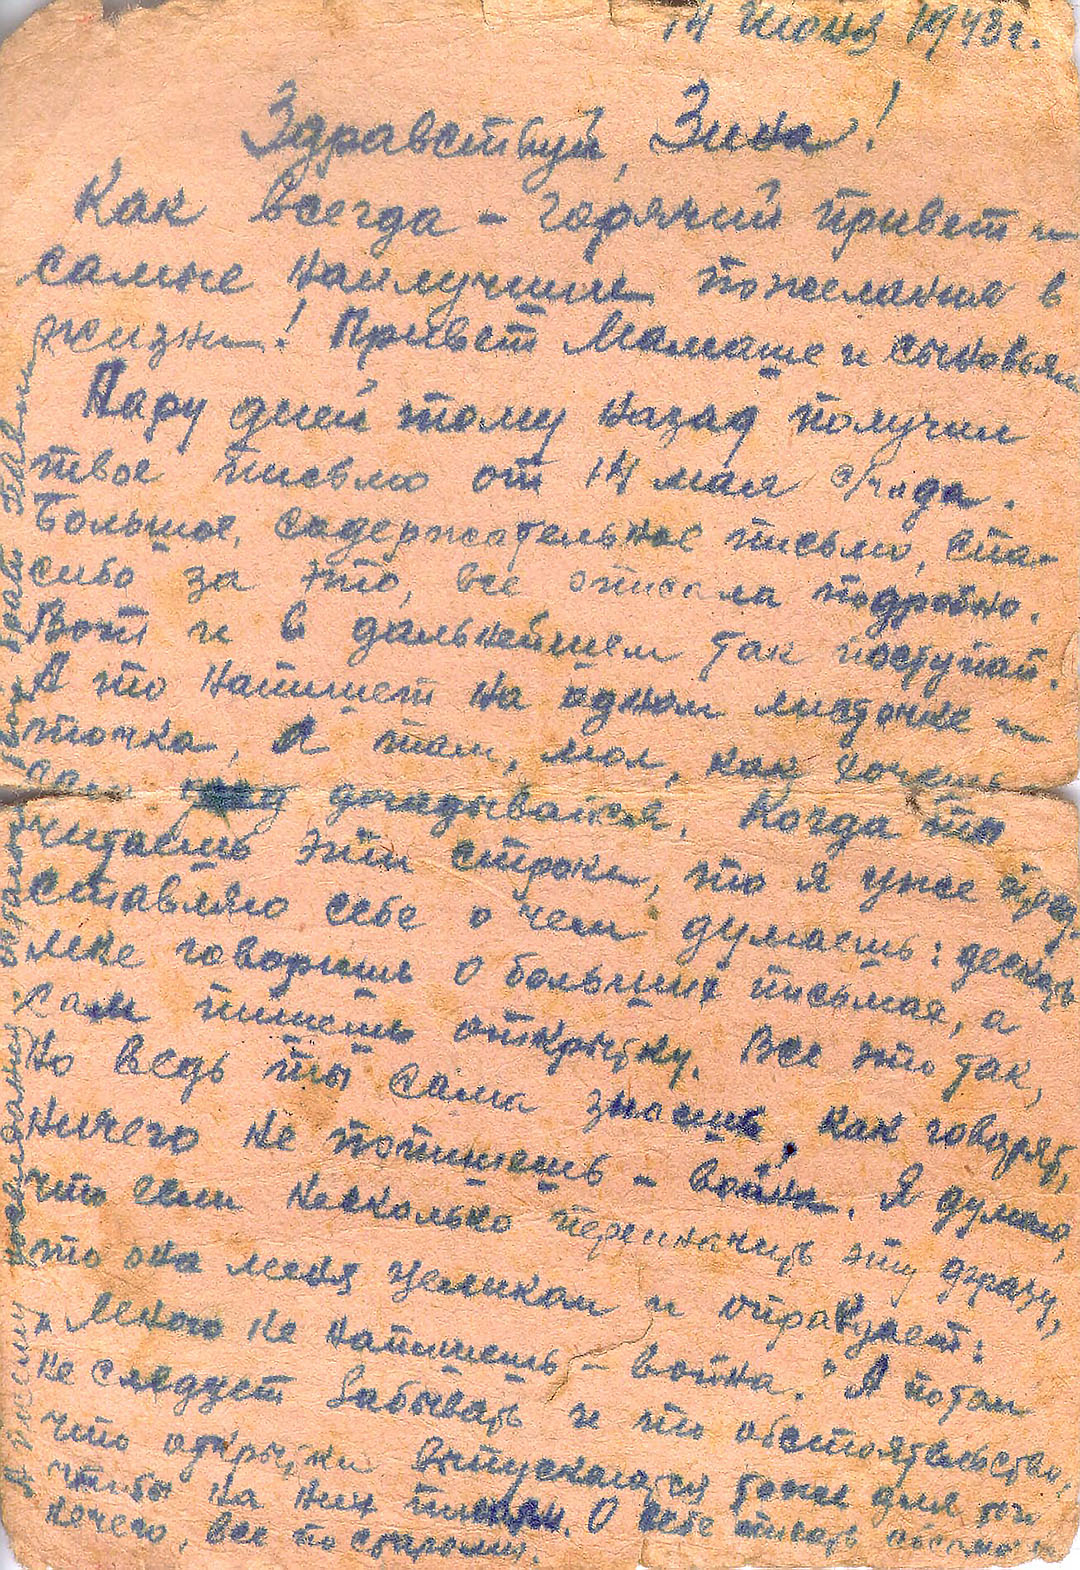 14 июня 1943г.
Здравствуй, Зина!
Как всегда – горячий привет и
самые наилучшие пожелания в
жизни! Привет Мамаше и сыновьям
Пару дней тому назад получил
твое письмо от 14 мая с/года.
Большое, содержательное письмо, спа-
сибо за это, все описала подробно.
Вот и в дальнейшем так поступай.
А то напишет на одном листочке –
точка, А там, мол, как хочешь
сам догадывайся. Когда ты
читаешь эти строки, то я уже пред-
ставляю себе о чем думаешь: дескать
мне говоришь о больших письмах, а
сам пишешь открытку. Все это так,
но ведь ты сама знаешь, как говорят,
ничего не попишешь – война. Я думаю,
что если несколько переиначить эту фразу,
то она меня целиком и оправдает:
„Много не напишешь – война." А потом
не следует забывать и то обстоятельство,
что открытки выпускаются тоже для того
чтобы на них писали. О себе писать
нечего, все по старому.